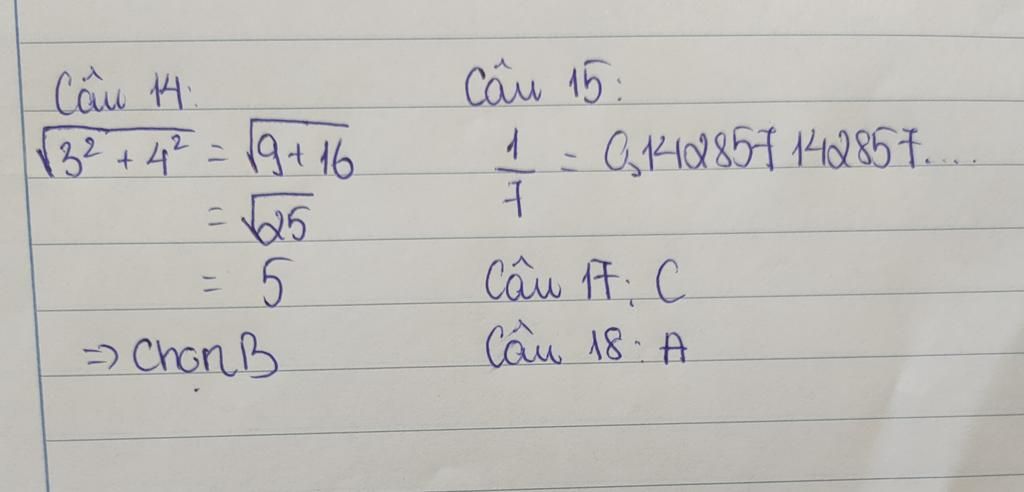 Câu 14:
√3² + 4² = √9 + 16
= √25
= 5
=> Chọn B
Câu 15:
1/7 = 0,142857 142857....
Câu 17: C
Câu 18: A